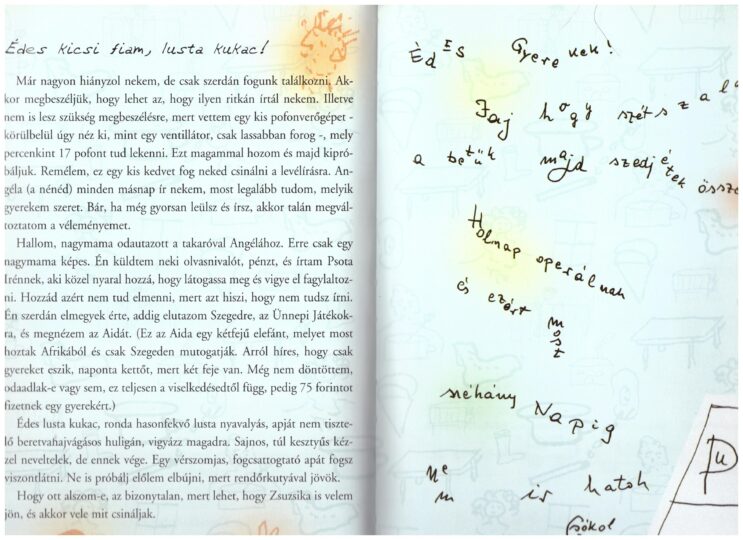 Édes kicsi fiam, lusta kukac!
Már nagyon hiányzol nekem, de csak szerdán fogunk találkozni. Ak-
kor megbeszéljük, hogy lehet az, hogy ilyen ritkán írtál nekem. Illetve
nem is lesz szükség megbeszélésre, mert vettem egy kis pofonverőgépet -
körülbelül úgy néz ki, mint egy ventillátor, csak lassabban forog -, mely
percenkint 17 pofont tud lekenni. Ezt magammal hozom és majd kipró-
báljuk. Remélem, ez egy kis kedvet fog neked csinálni a levélírásra. An-
géla (a nénéd) minden másnap ír nekem, most legalább tudom, melyik
gyerekem szeret. Bár, ha még gyorsan leülsz és írsz, akkor talán megvál-
toztatom a véleményemet.
Hallom, nagymama odautazott a takaróval Angélához. Erre csak egy
nagymama képes. Én küldtem neki olvasnivalót, pénzt, és írtam Psota
Irénnek, aki közel nyaral hozzá, hogy látogassa meg és vigye el fagylaltoz-
ni. Hozzád azért nem tud elmenni, mert azt hiszi, hogy nem tudsz írni.
Én szerdán elmegyek érte, addig elutazom Szegedre, az Ünnepi Játékok-
ra, és megnézem az Aidát. (Ez az Aida egy kétfejű elefánt, melyet most
hoztak Afrikából és csak Szegeden mutogatják. Arról híres, hogy csak
gyereket eszik, naponta kettőt, mert két feje van. Még nem döntöttem,
odaadlak-e vagy sem, ez teljesen a viselkedésedtől függ, pedig 75 forintot
fizetnek egy gyerekért.)
Édes lusta kukac, ronda hasonfekvő lusta nyavalyás, apját nem tiszte-
lő beretvahajvágásos huligán, vigyázz magadra. Sajnos, túl kesztyűs kéz-
zel neveltelek, de ennek vége. Egy vérszomjas, fogcsattogtató apát fogsz
viszontlátni. Ne is próbálj előlem elbújni, mert rendőrkutyával jövök.
Hogy ott alszom-e, az bizonytalan, mert lehet, hogy Zsuzsika is velem
jön, és akkor vele mit csináljak.
Édes Gyerekek!
Jaj hogy szétszal
a betűk majd szedjétek össze
Holnap operálnak
és ezért most
néhány Napig
Nem is hatok
Csókol
Pu